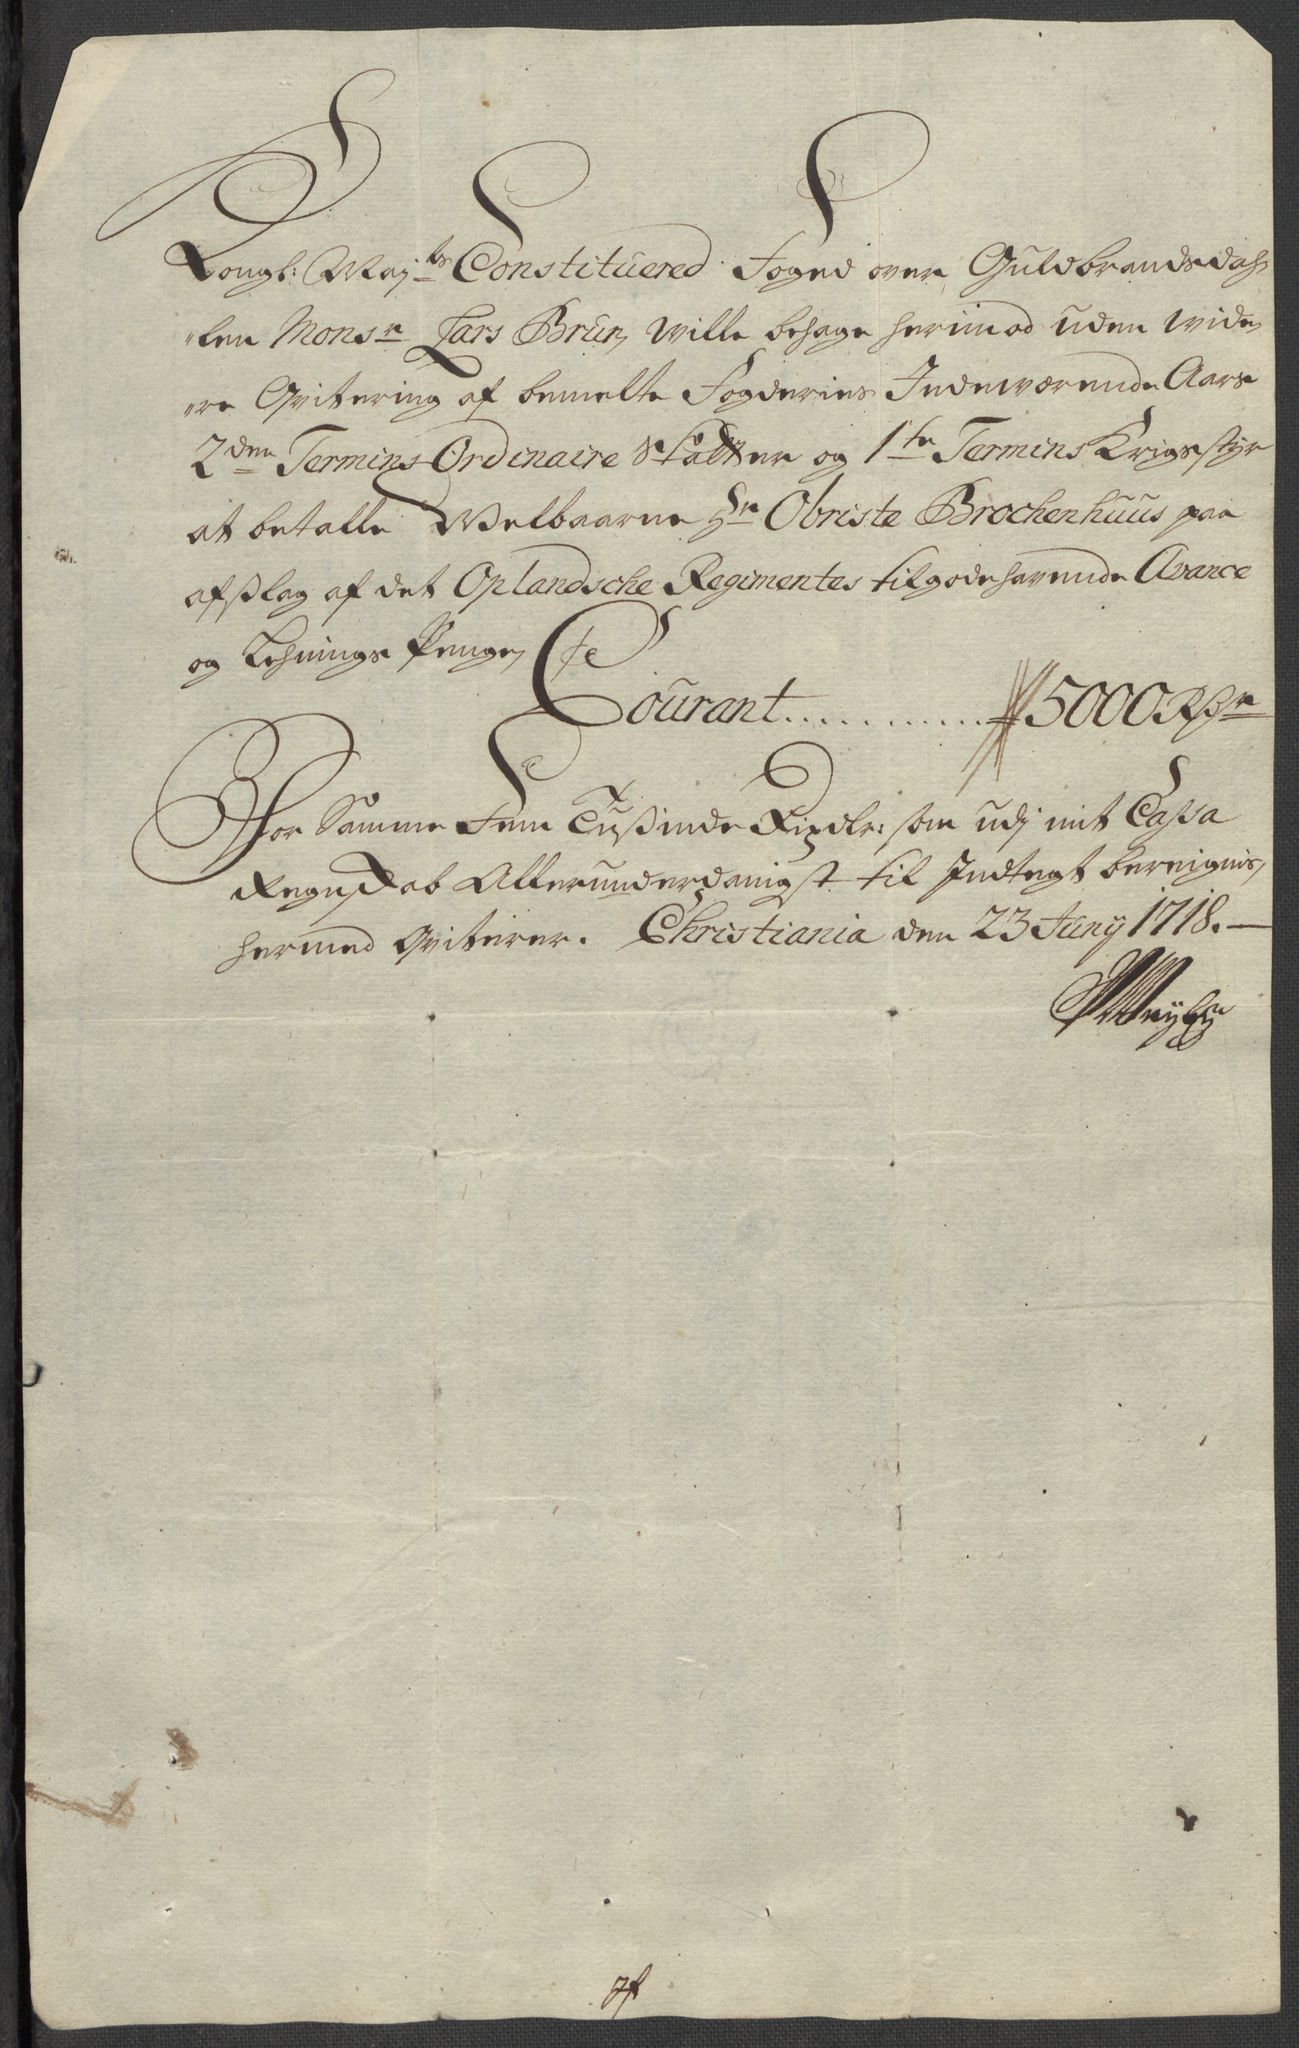 Kongl: May:ts Constituered Foged over Guldbrandsdah-
„len Monsr Lars Brun, wille behage herimod uden wide-
„re Qvitering af bemelte Fogderies Indeværende Aars
2den Termins Ordinaire Skatter og 1te Termins Krigsstyr
at betalle Welbaarne Hr Obriste Brochenhuus paa
afslag af det Oplandsche Regimentes tilgodehavende Avance
og Lehnings Penge,
Courant............ 5000 Rdr
For Samme Fem Tusinde Rixdlr: som udj mit Cassa
Regnskab Allerunderdanigst til Indtegt bereignis,
hermed Qviterer. Christiania den 23 Juny 1718.